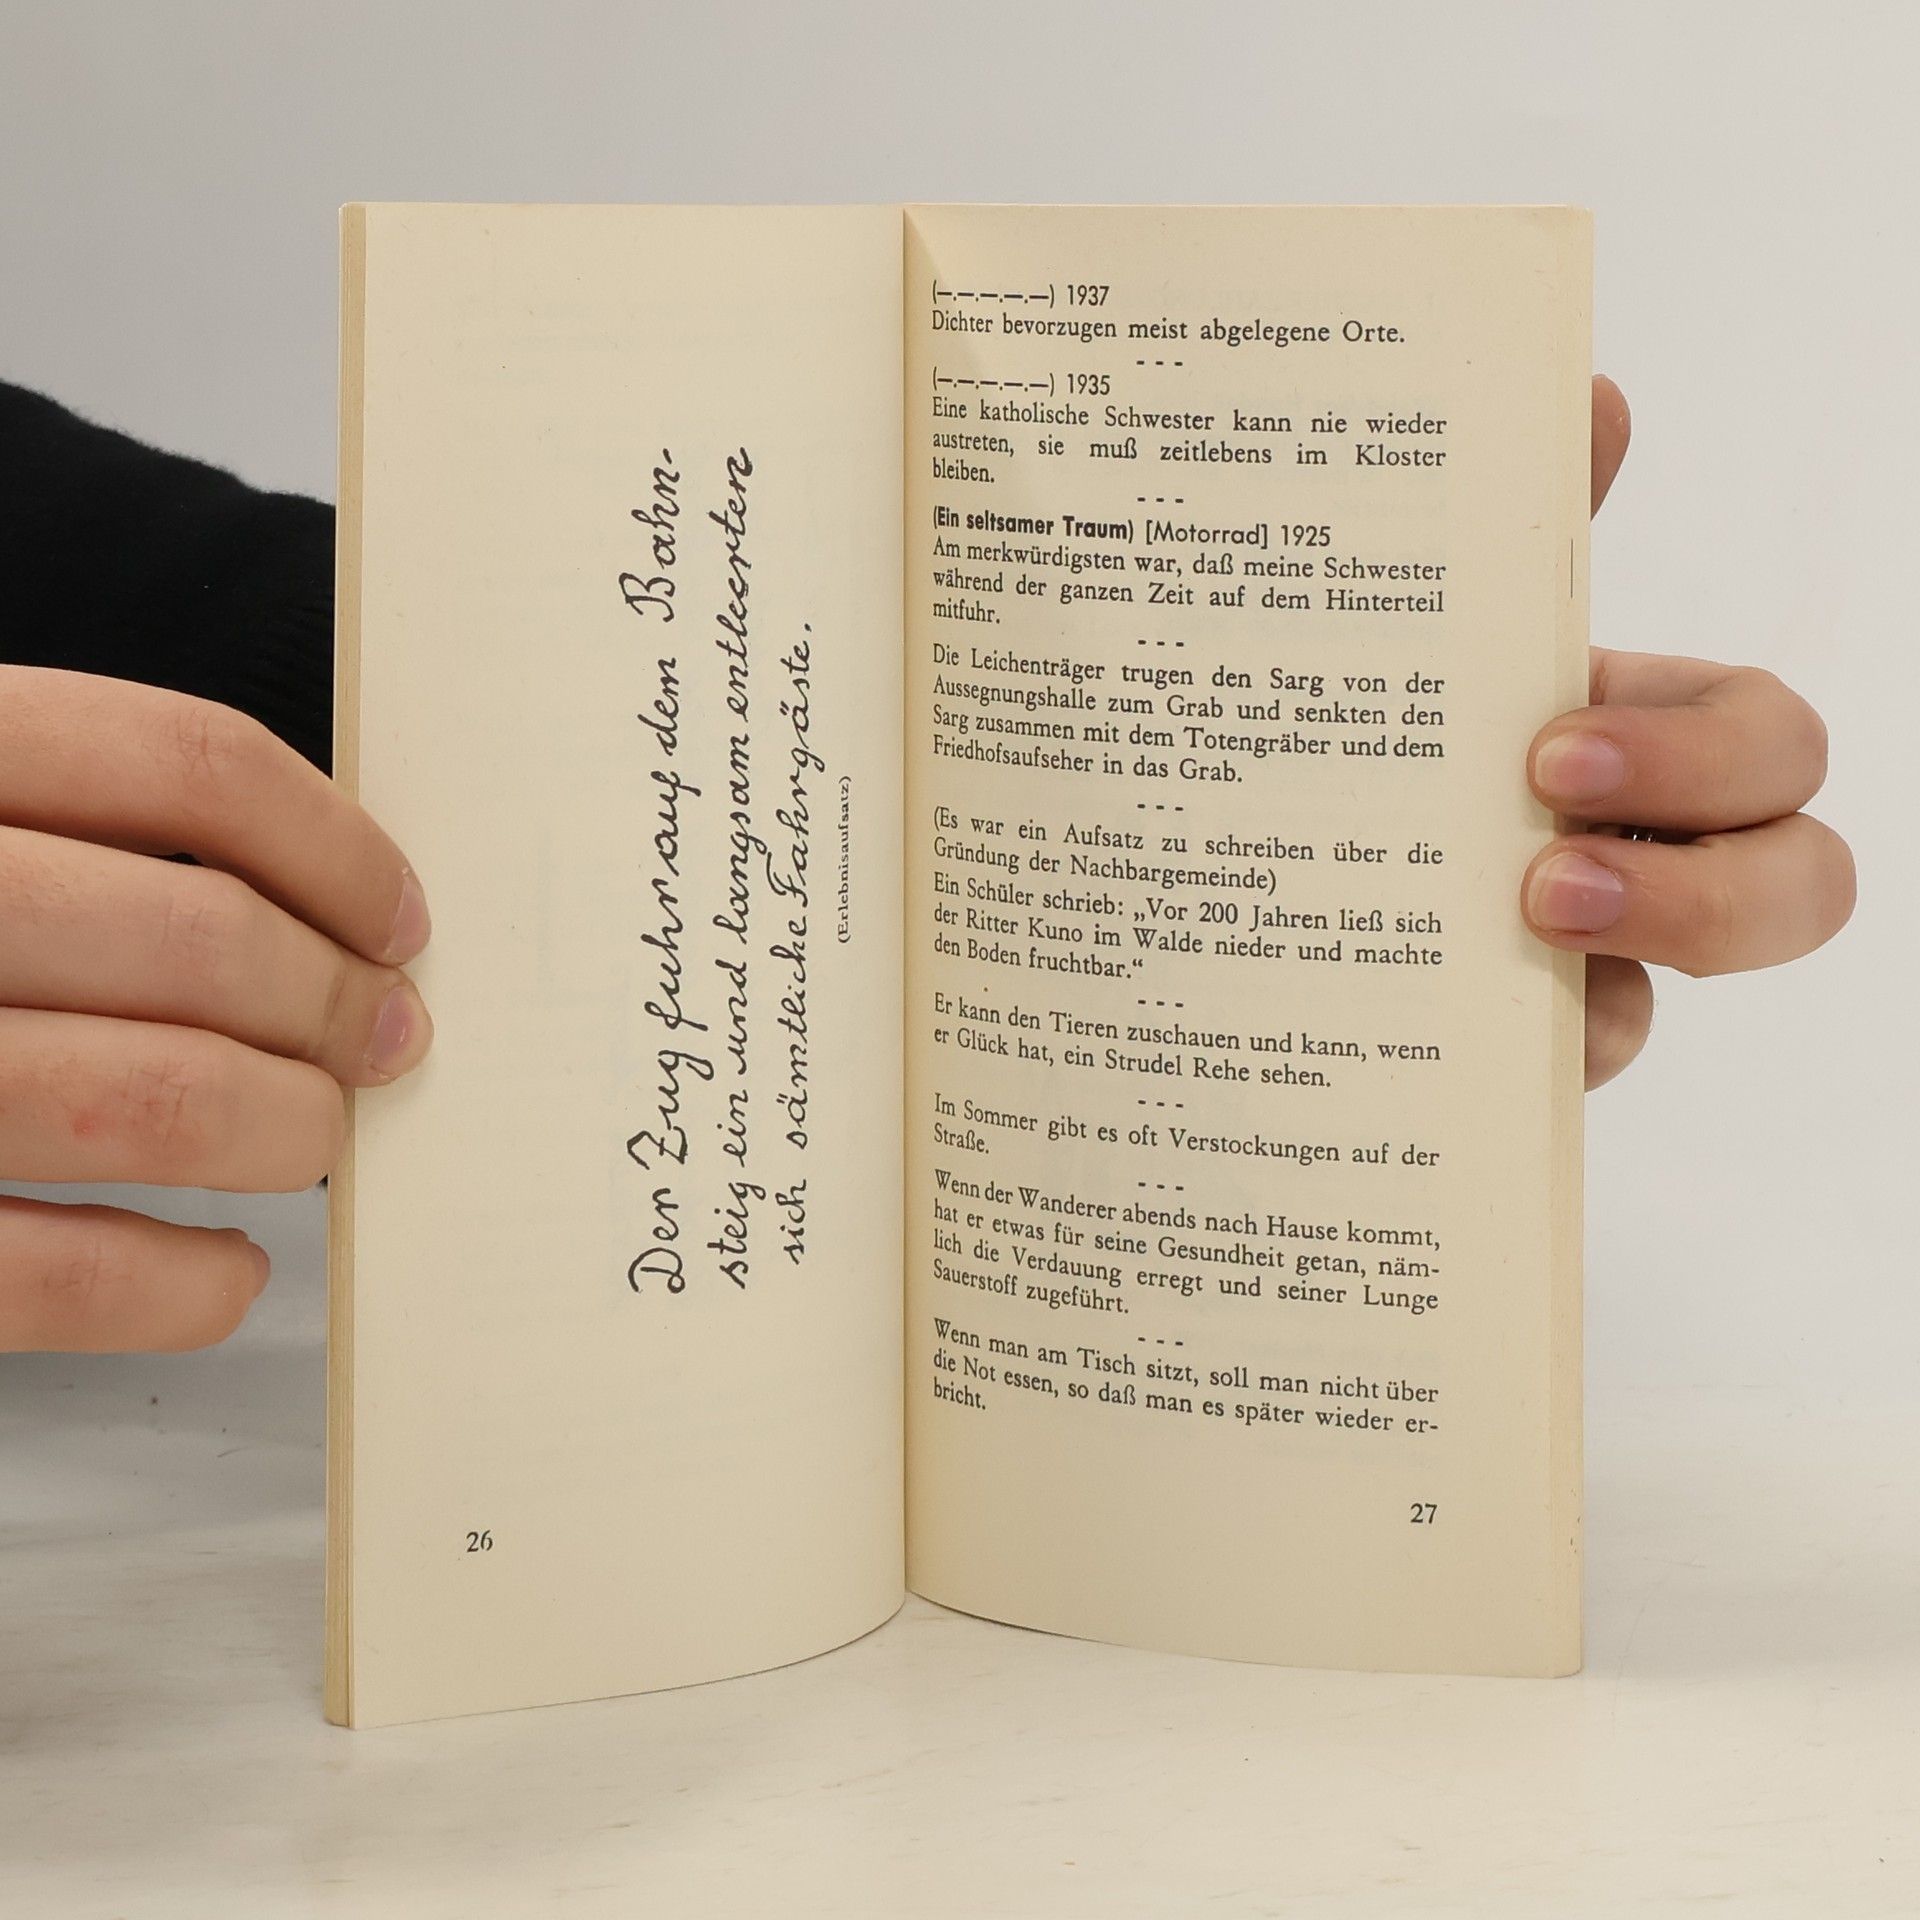 Der Zug fuhr auf dem Bahn-
steig ein und langsam entleerten
sich sämtliche Fahrgäste.
(Erlebnisaufsatz)
26
(—.—.—.—.—) 1937
Dichter bevorzugen meist abgelegene Orte.
- - -
(—.—.—.—.—) 1935
Eine katholische Schwester kann nie wieder
austreten, sie muß zeitlebens im Kloster
bleiben.
- - -
(Ein seltsamer Traum) [Motorrad] 1925
Am merkwürdigsten war, daß meine Schwester
während der ganzen Zeit auf dem Hinterteil
mitfuhr.
- - -
Die Leichenträger trugen den Sarg von der
Aussegnungshalle zum Grab und senkten den
Sarg zusammen mit dem Totengräber und dem
Friedhofsaufseher in das Grab.
- - -
(Es war ein Aufsatz zu schreiben über die
Gründung der Nachbargemeinde)
Ein Schüler schrieb: „Vor 200 Jahren ließ sich
der Ritter Kuno im Walde nieder und machte
den Boden fruchtbar.“
- - -
Er kann den Tieren zuschauen und kann, wenn
er Glück hat, ein Strudel Rehe sehen.
- - -
Im Sommer gibt es oft Verstockungen auf der
Straße.
- - -
Wenn der Wanderer abends nach Hause kommt,
hat er etwas für seine Gesundheit getan, näm-
lich die Verdauung erregt und seiner Lunge
Sauerstoff zugeführt.
- - -
Wenn man am Tisch sitzt, soll man nicht über
die Not essen, so daß man es später wieder er-
bricht.
27